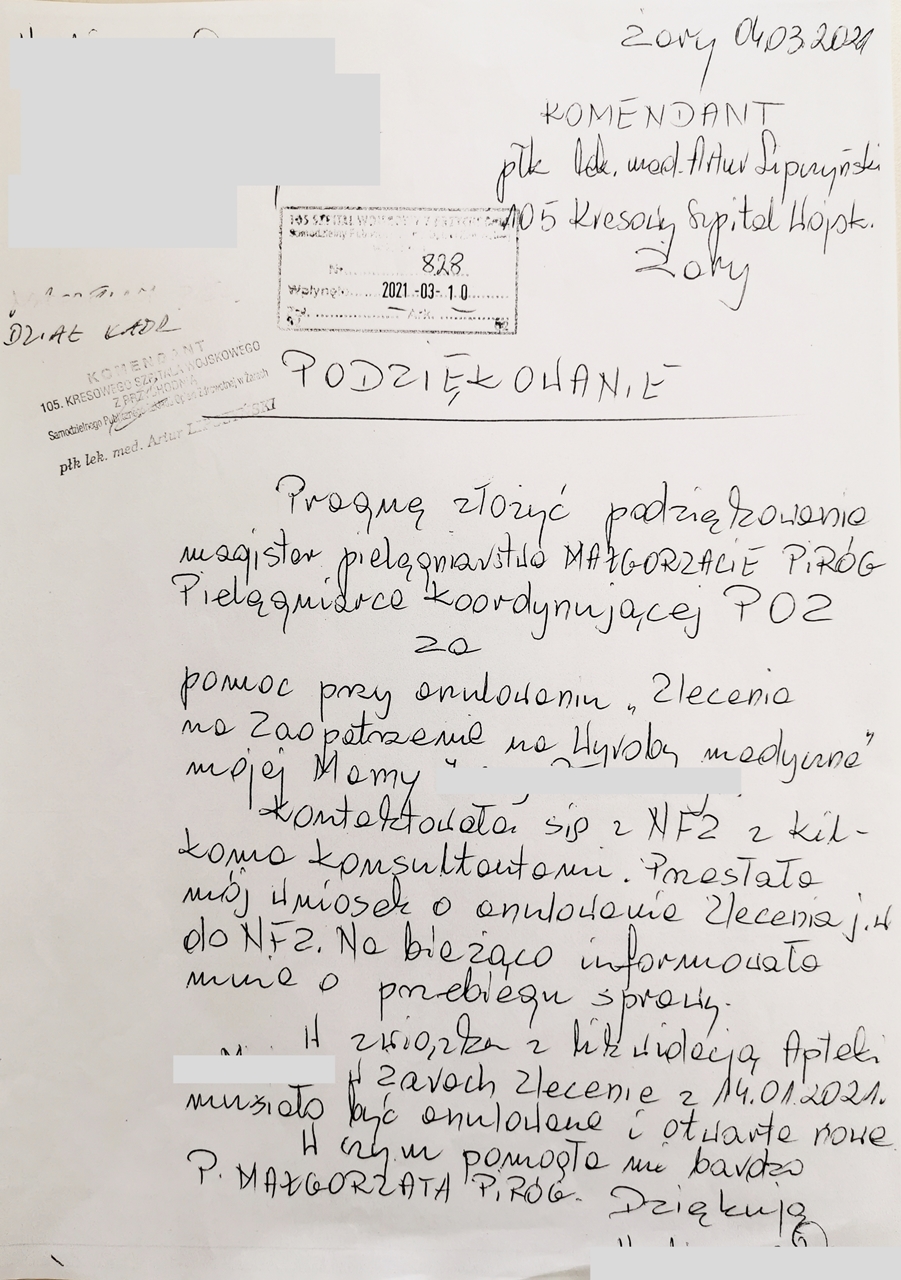 Żary 04.03.2021
KOMENDANT
płk lek. med. Artur Lipczyński
105 Kresowy Szpital Wojsk.
Żary
Nr 828
Wpłynęło 2021-03-10
DZIAŁ KADR
KOMENDANT
105. KRESOWEGO SZPITALA WOJSKOWEGO
Z PRZYCHODNIĄ
Samodzielnego Zdrowotnej w Żarach
płk lek. med. Artur LIPCZYŃSKI
PODZIĘKOWANIE
Pragnę złożyć podziękowania
magister pielęgniarstwa MAŁGORZACIE PIRÓG
Pielęgniarce Koordynującej POZ
za
pomoc przy anulowaniu „Zlecenia
na Zaopatrzenie na Wyroby medyczne”
mojej Mamy
Kontaktowała się z NFZ z kil-
koma konsultantami. Przesłała
mój wniosek o anulowanie Zlecenia j.w
do NFZ. Na bieżąco informowała
mnie o przebiegu sprawy.
W związku z likwidacją Apteki
w Żarach Zlecenie z 14.01.2021.
musiało być anulowane i otwarte nowe
W czym pomogła mi bardzo
P. MAŁGORZATA PIRÓG.
Dziękuję